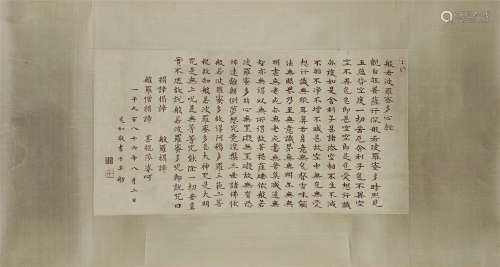 般若波羅密多心經
觀自在菩薩行深般若波羅密多時照見
五蘊皆空度一切苦厄舍利子色不異空
空不異色色即是空空即是色受想行識
亦復如是舍利子是諸法空相不生不滅
不垢不淨不增不減是故空中無色無受
想行識無眼耳鼻舌身意無色聲香味觸
法無眼界乃至無意識界無無明亦無無
明盡無老死亦無老死盡無苦集滅道無
智亦無得以無所得故菩提薩埵依般若
波羅密多故心無罣礙無罣礙故無有恐
怖遠離顛倒夢想究竟涅槃三世諸佛依
般若波羅密多故得阿耨多羅三藐三菩
提故知般若波羅密多是大神咒是大明
咒是無上咒是無等等咒能除一切苦真
實不虛故說般若波羅密多咒即說咒曰
揭諦揭諦 般羅揭諦
般羅僧揭諦 菩提莎婆呵
一千九百八十六年八月二日
敬書